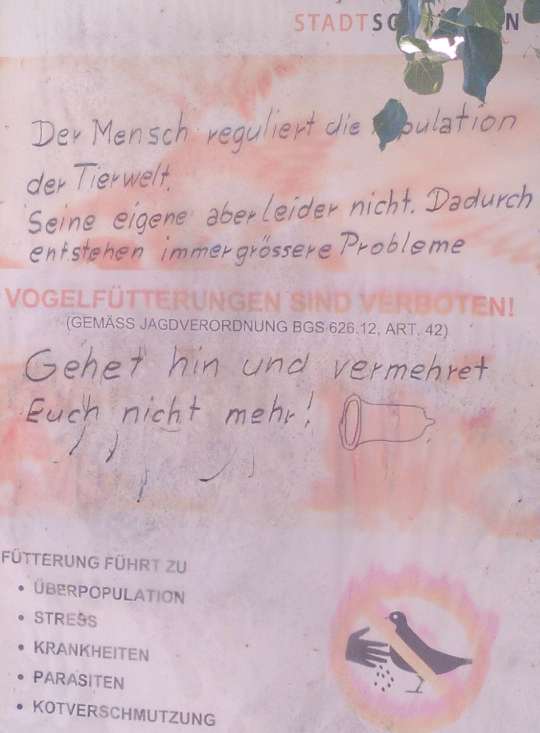 STADT
Der Mensch reguliert die
der Tierwelt.
Seine eigene aber leider nicht. Dadurch
entstehen immer grössere Probleme
VOGELFÜTTERUNGEN SIND VERBOTEN!
(GEMÄSS JAGDVERORDNUNG BGS 626.12, ART. 42)
Gehet hin und vermehret
Euch nicht mehr!
FÜTTERUNG FÜHRT ZU
• ÜBERPOPULATION
• STRESS
• KRANKHEITEN
• PARASITEN
• KOTVERSCHMUTZUNG